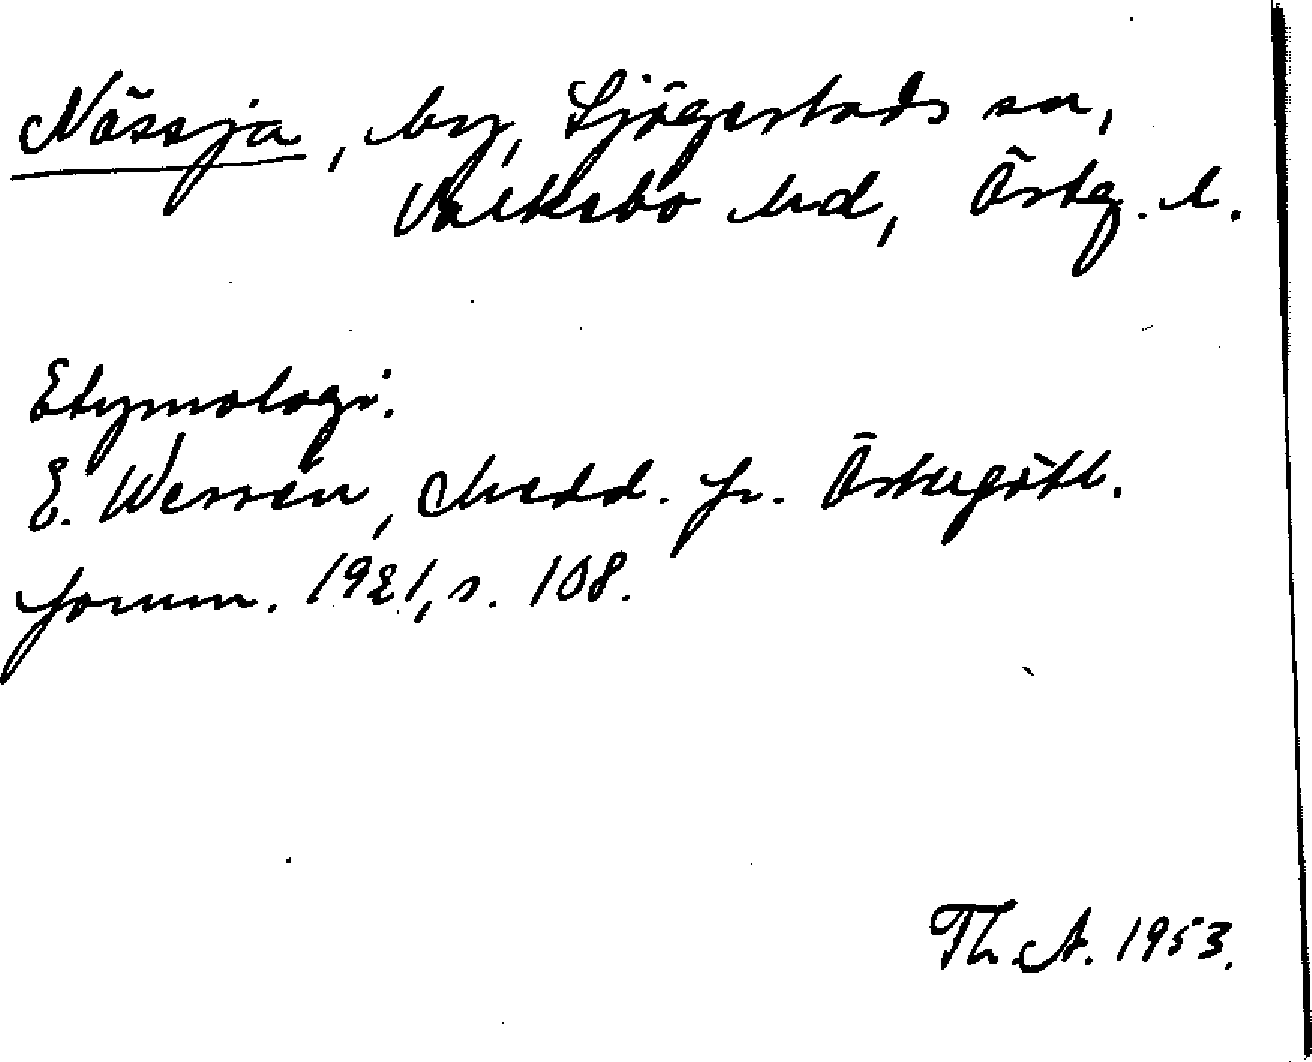 Nässja, by, Sjögestads sn,
Valkebo hd, Östg. l.
Etymologi.
E. Wessén, Medd. fr. Östergötl.
fornm. 1921, s. 108.
Th. A. 1953.